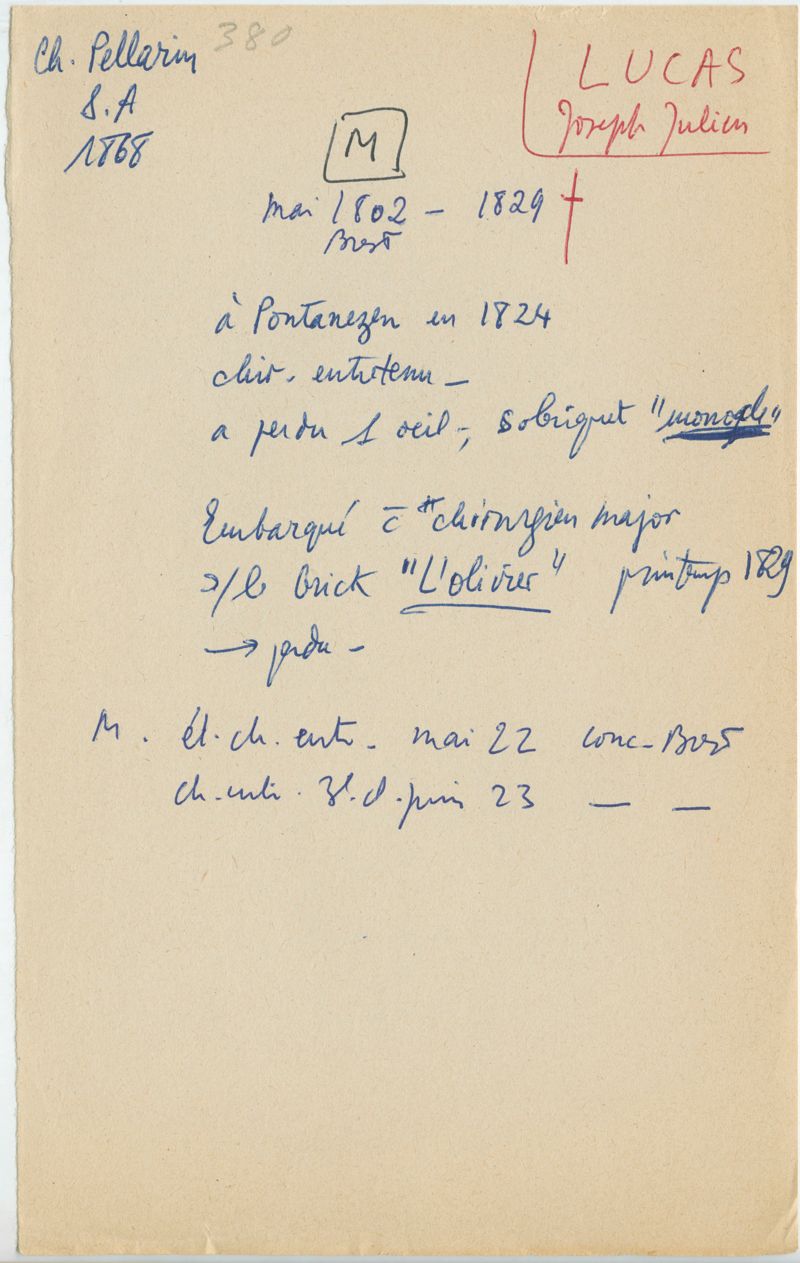 Ch. Pellarin 380
S.A
1868
LUCAS
Joseph Julien
M
mai 1802 - 1829 †
Brest
à Pontanezen en 1824
chir. entretenu -
a perdu 1 oeil -, sobriquet "monocle"
Embarqué c̄ "chirurgien major
s/le brick "L'olivier" printemps 1829
→ perdu -
M. él. ch. entr. mai 22 conc. Brest
ch. entr. 3e. cl. juin 23 — —